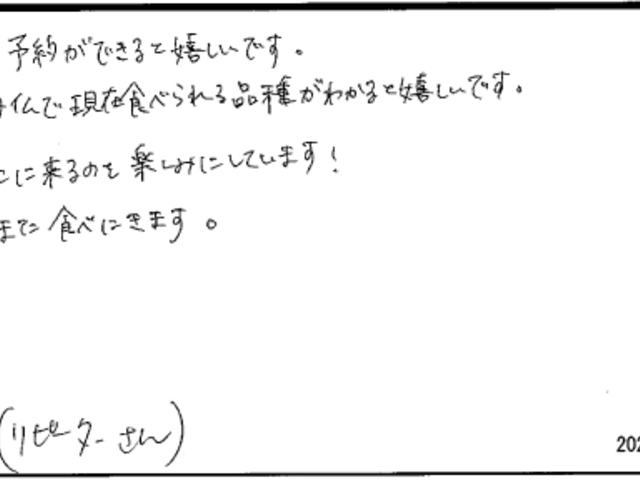 予約ができると嬉しいです。
イムで現在食べられる品種がわかると嬉しいです。
に来るのを楽しみにしています!
また食べにきます。
(リピーターさん)
202